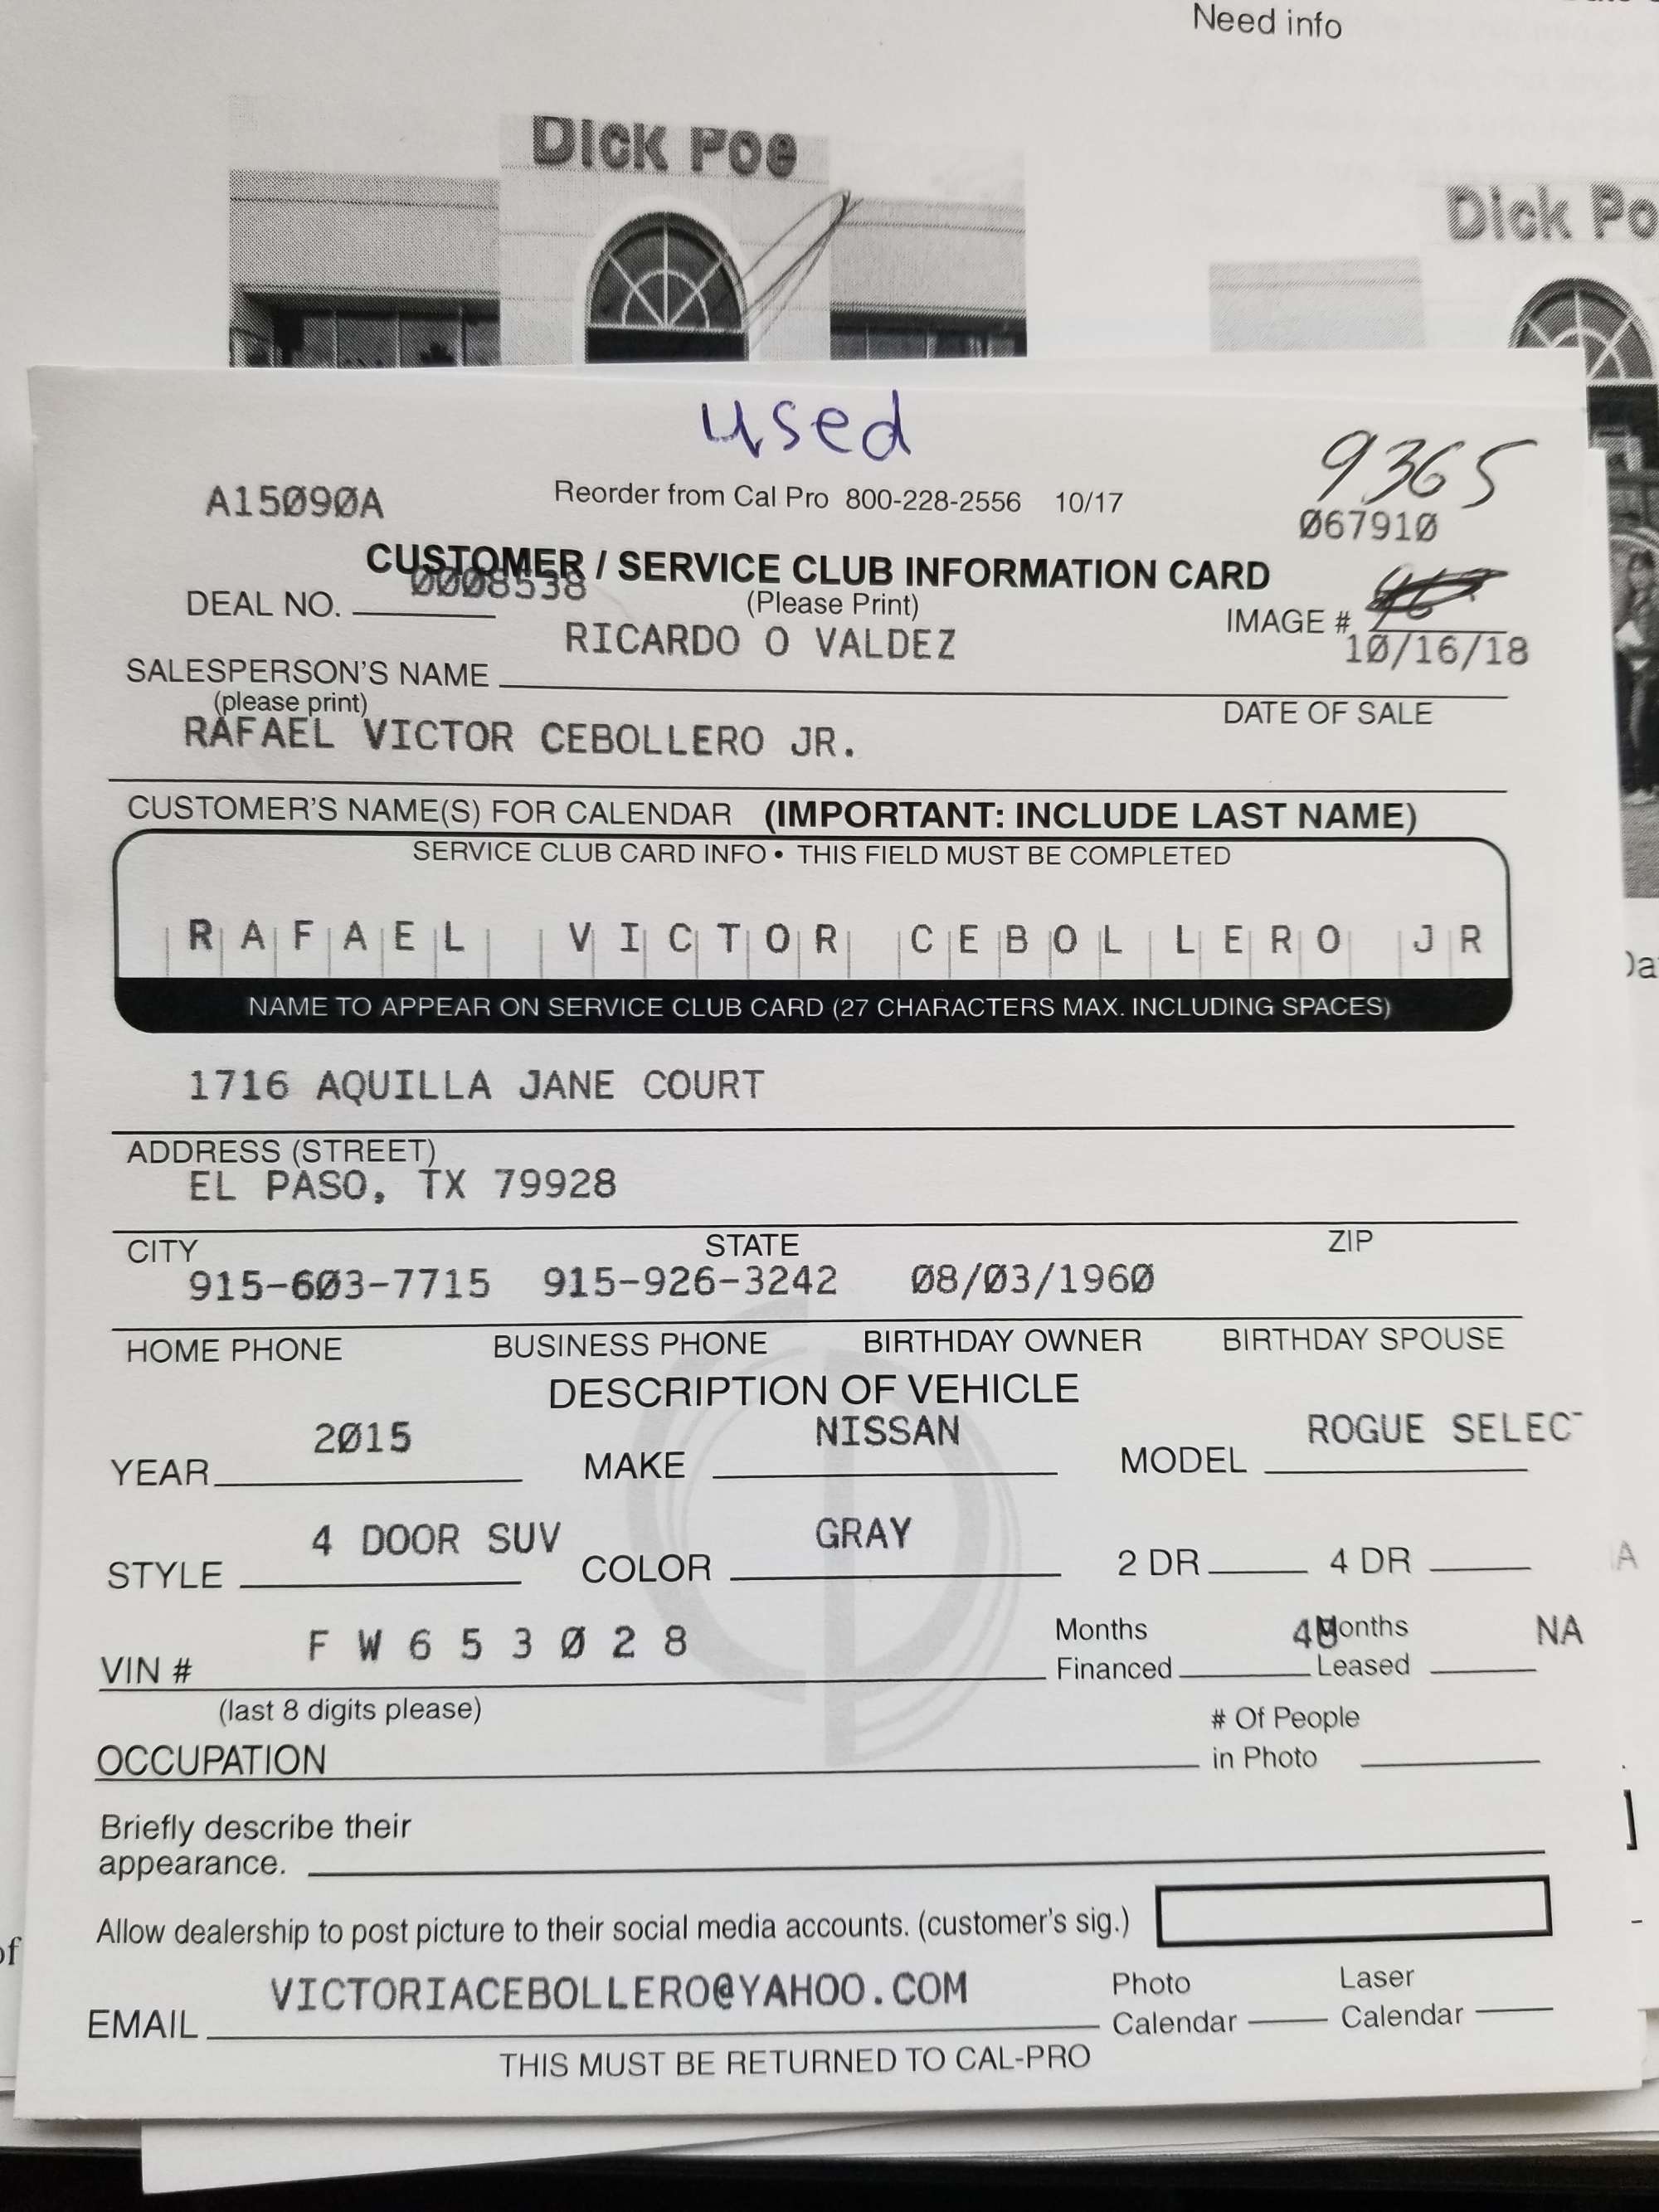 Need info
Dick Poe
Dick Po
used
9365
A15090A
Reorder from Cal Pro 800-228-2556 10/17
067910
CUSTOMER / SERVICE CLUB INFORMATION CARD
0008538
DEAL NO.
(Please Print)
IMAGE #
RICARDO O VALDEZ
10/16/18
SALESPERSON'S NAME
(please print)
DATE OF SALE
RAFAEL VICTOR CEBOLLERO JR.
CUSTOMER'S NAME(S) FOR CALENDAR (IMPORTANT: INCLUDE LAST NAME)
SERVICE CLUB CARD INFO • THIS FIELD MUST BE COMPLETED
RAFAEL VICTOR CEBOLLERO JR
NAME TO APPEAR ON SERVICE CLUB CARD (27 CHARACTERS MAX. INCLUDING SPACES)
1716 AQUILLA JANE COURT
ADDRESS (STREET)
EL PASO, TX 79928
CITY STATE ZIP
915-603-7715 915-926-3242 08/03/1960
HOME PHONE BUSINESS PHONE BIRTHDAY OWNER BIRTHDAY SPOUSE
DESCRIPTION OF VEHICLE
2015 NISSAN ROGUE SELEC
YEAR MAKE MODEL
4 DOOR SUV GRAY
STYLE COLOR 2 DR 4 DR
F W 6 5 3 0 2 8
Months Financed 48 Months Leased NA
VIN #
(last 8 digits please)
# Of People
OCCUPATION in Photo
Briefly describe their
appearance.
Allow dealership to post picture to their social media accounts. (customer's sig.)
VICTORIACEBOLLERO@YAHOO.COM
EMAIL
Photo Calendar Laser Calendar
THIS MUST BE RETURNED TO CAL-PRO